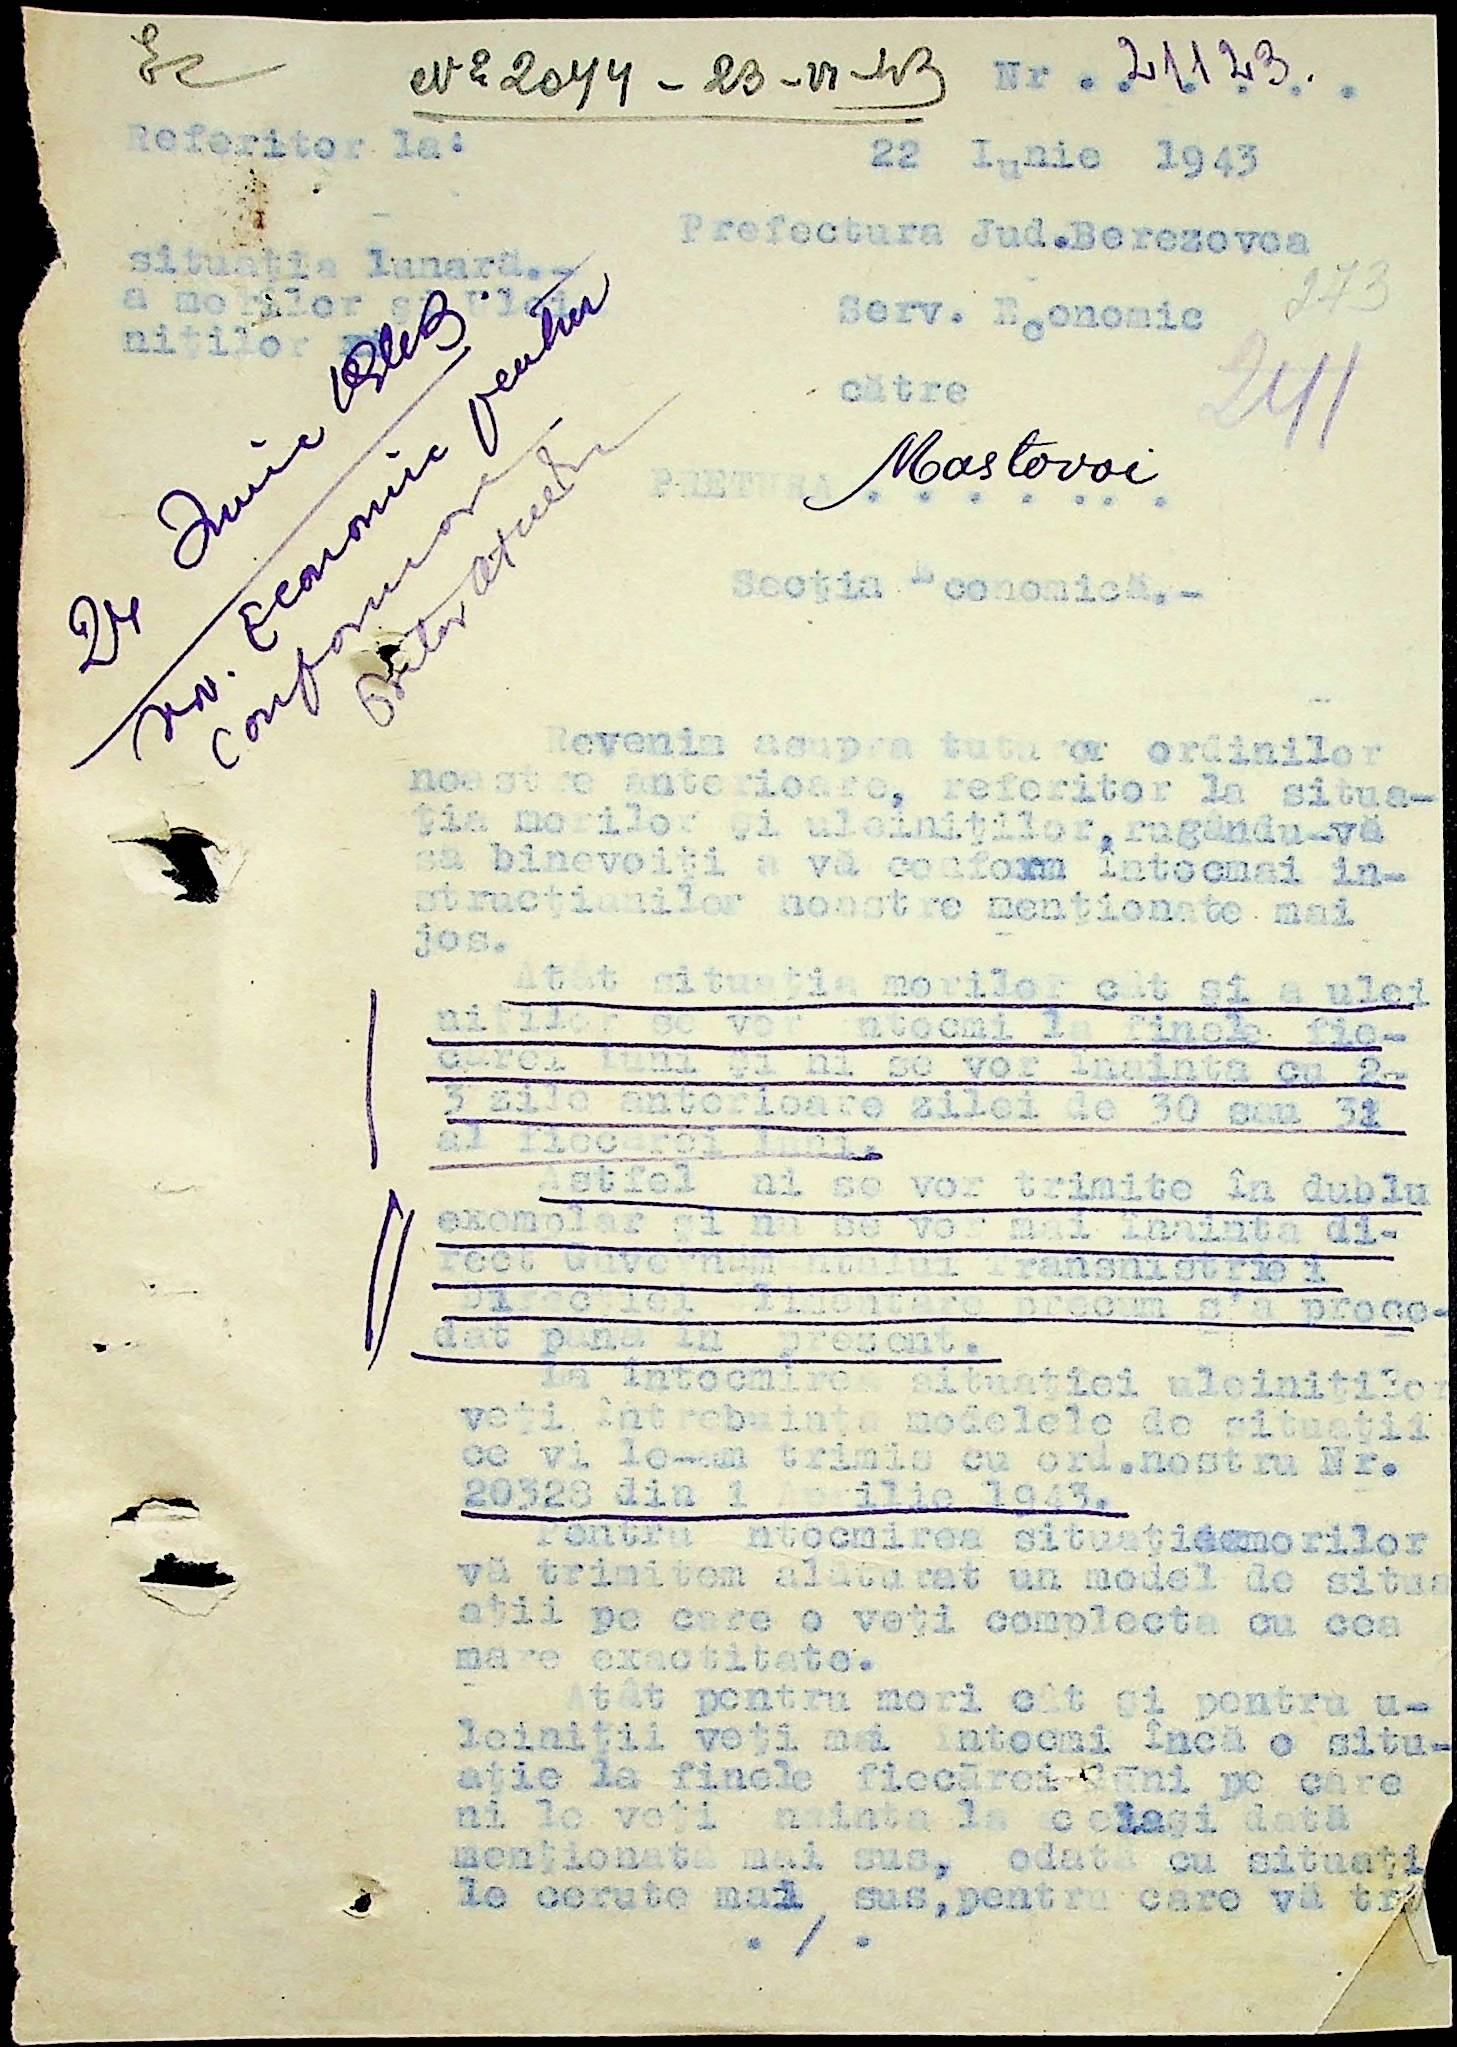 Ec
№ 2044 - 23 - VI - 43
Nr . 21123 .
Referitor la:
22 Iunie 1943
situaţia lunară.-
a morilor şi Ulei
niţilor
Prefectura Jud.Berezovca
273
Serv. Economic
către
241
PRETURA Mastovoi
Secţia Economică.-
24 Iunie
Economic pentru
conformare
Revenim asupra tuturor ordinilor
noastre anterioare, referitor la situa-
ţia morilor şi uleiniţilor,rugându-vă
să binevoiţi a vă conform întocmai in-
strucţiunilor noastre menţionate mai
jos.
Atât situaţia morilor cât şi a ulei
niţilor se vor întocmi la finele fie-
cărei luni şi ni se vor înainta cu 2-
3 zile anterioare zilei de 30 sau 31
al fiecărei luni.
Astfel ni se vor trimite în dublu
exemplar şi nu se vor mai înainta di-
rect Guvernământului Transnistriei
Direcţiei Alimentare precum s'a proce-
dat până în prezent.
La întocmirea situaţiei uleiniţilor
veţi întrebuinţa modelele de situaţii
ce vi le-am trimis cu ord.nostru Nr.
20328 din 1 Aprilie 1943.
Pentru întocmirea situaţiei morilor
vă trimitem alăturat un model de situa
aţii pe care o veţi complecta cu cea
mare exactitate.
Atât pentru mori cât şi pentru u-
leiniţii veţi mai întocmi încă o situ-
aţie la finele fiecărei luni pe care
ni le veţi nainta la celaşi dată
menţionată mai sus, odată cu situaţi
le cerute mai sus,pentru care vă tr
. / .